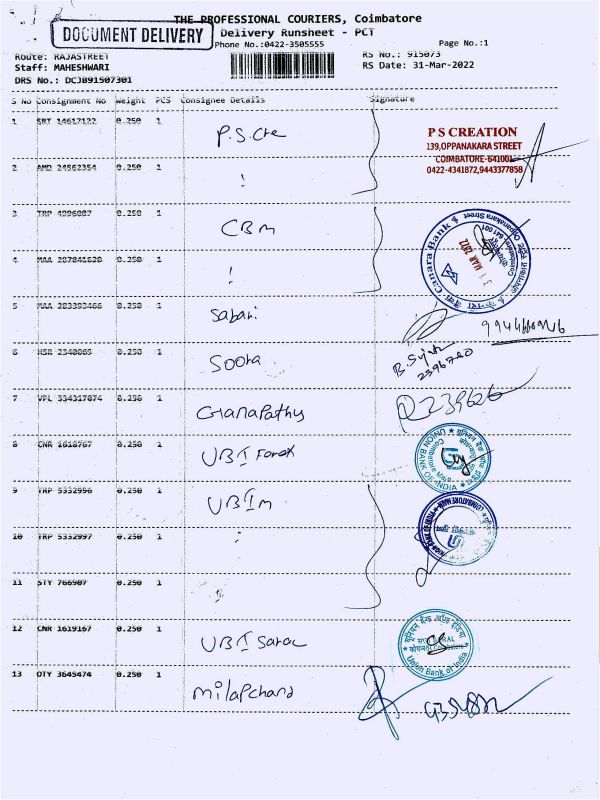 THE PROFESSIONAL COURIERS, Coimbatore
DOCUMENT DELIVERY
Delivery Runsheet - PCT
Phone No.:0422-3505555
Page No.:1
Route: RAJASTREET
RS No.: 915073
Staff: MAHESHWARI
RS Date: 31-Mar-2022
DRS No.: DCJ891507301
S No Consignment No Weight PCS Consignee Details Signature
1 SRT 14617122 0.250 1 P.S.Cre
P S CREATION
139,OPPANAKARA STREET
COIMBATORE-641001
0422-4341872,9443377858
2 AMD 24562354 0.250 1
3 TRP 4996087 0.250 1 CBM
Canara Bank
Oppanakara Street
Coimbatore 641 001
MAR 2022
4 MAA 287841620 0.250 1
5 MAA 283393466 0.250 1 Sabari
6 HSR 2340869 0.250 1 Soora
B. Sujatha
2396720
7 VPL 334317874 0.250 1 Ganapathy
239626
8 CNR 1618767 0.250 1 UBI Forex
UNION BANK OF INDIA
Coimbatore Main
9 TRP 5332996 0.250 1 UBI m
10 TRP 5332997 0.250 1
11 STY 766907 0.250 1
12 CNR 1619167 0.250 1 UBI Sarac
यूनियन बैंक ऑफ इंडिया
Union Bank of India
13 OTY 3645474 0.250 1 Milapchand